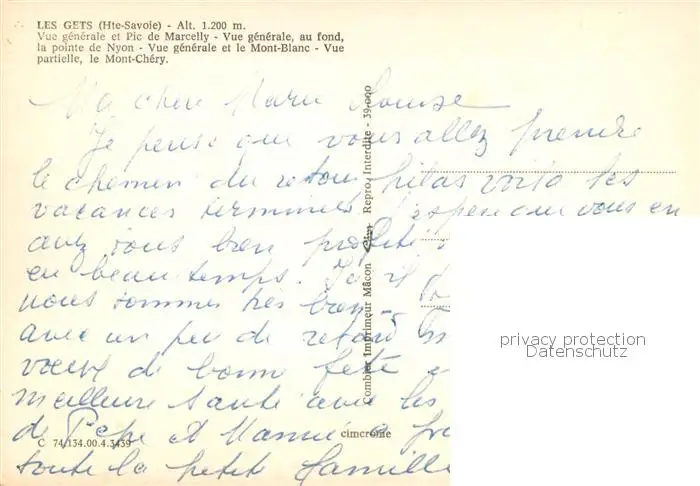 LES GETS (Hte-Savoie) - Alt. 1.200 m.
Vue générale et Pic de Marcelly - Vue générale, au fond,
la pointe de Nyon - Vue générale et le Mont-Blanc - Vue
partielle, le Mont-Chéry.
Ma chère Marie Louise
Je pense que vous allez prendre
le chemin du retour hélas voilà les
vacances terminées j'espère que vous en
avez tous bien profité
en beau temps. Ici il
nous sommes très bien
avec un peu de retard
vœux de bonne fête
meilleure santé avec les
de Pépé et Mamie
toute la petite famille
C 74/134.00.4.3439
cimcrome
Combier Imprimeur Mâcon Cim Repro. Interdite - 39-000
privacy protection
Datenschutz